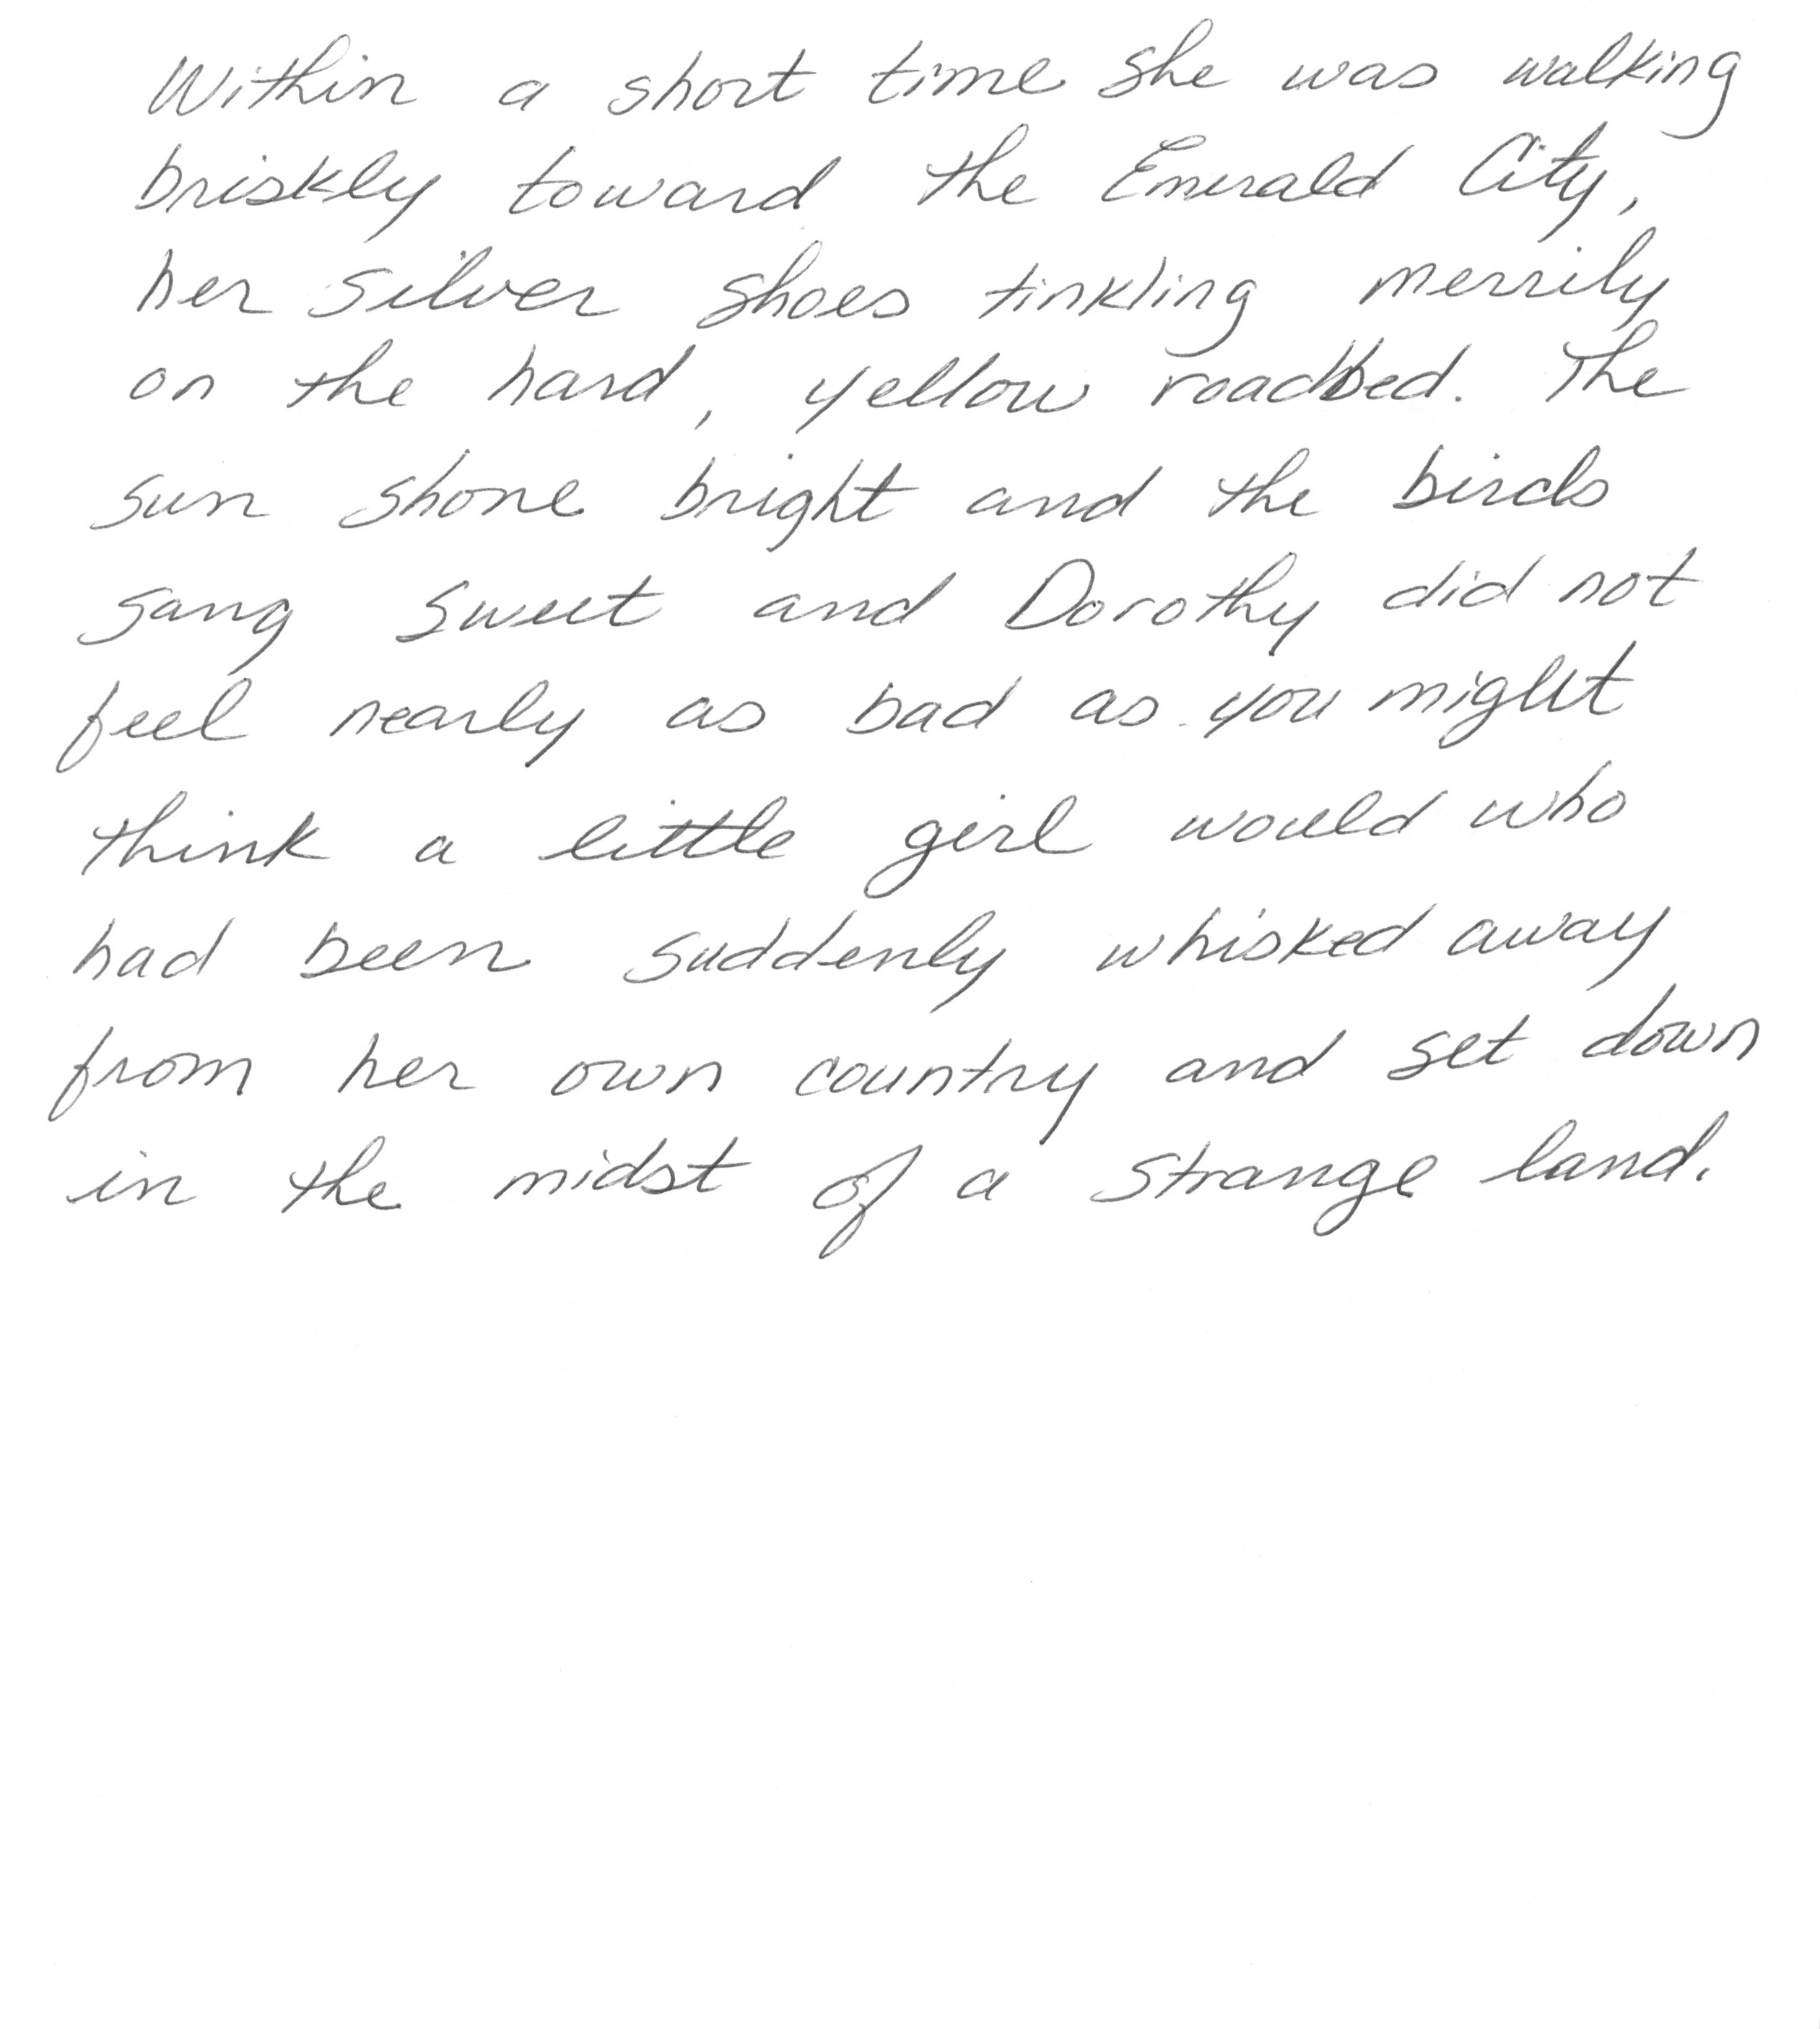 Within a short time she was walking
briskly toward the Emerald City,
her silver shoes tinkling merrily
on the hard, yellow roadbed. The
sun shone bright and the birds
sang sweet and Dorothy did not
feel nearly as bad as you might
think a little girl would who
had been suddenly whisked away
from her own country and set down
in the midst of a strange land.